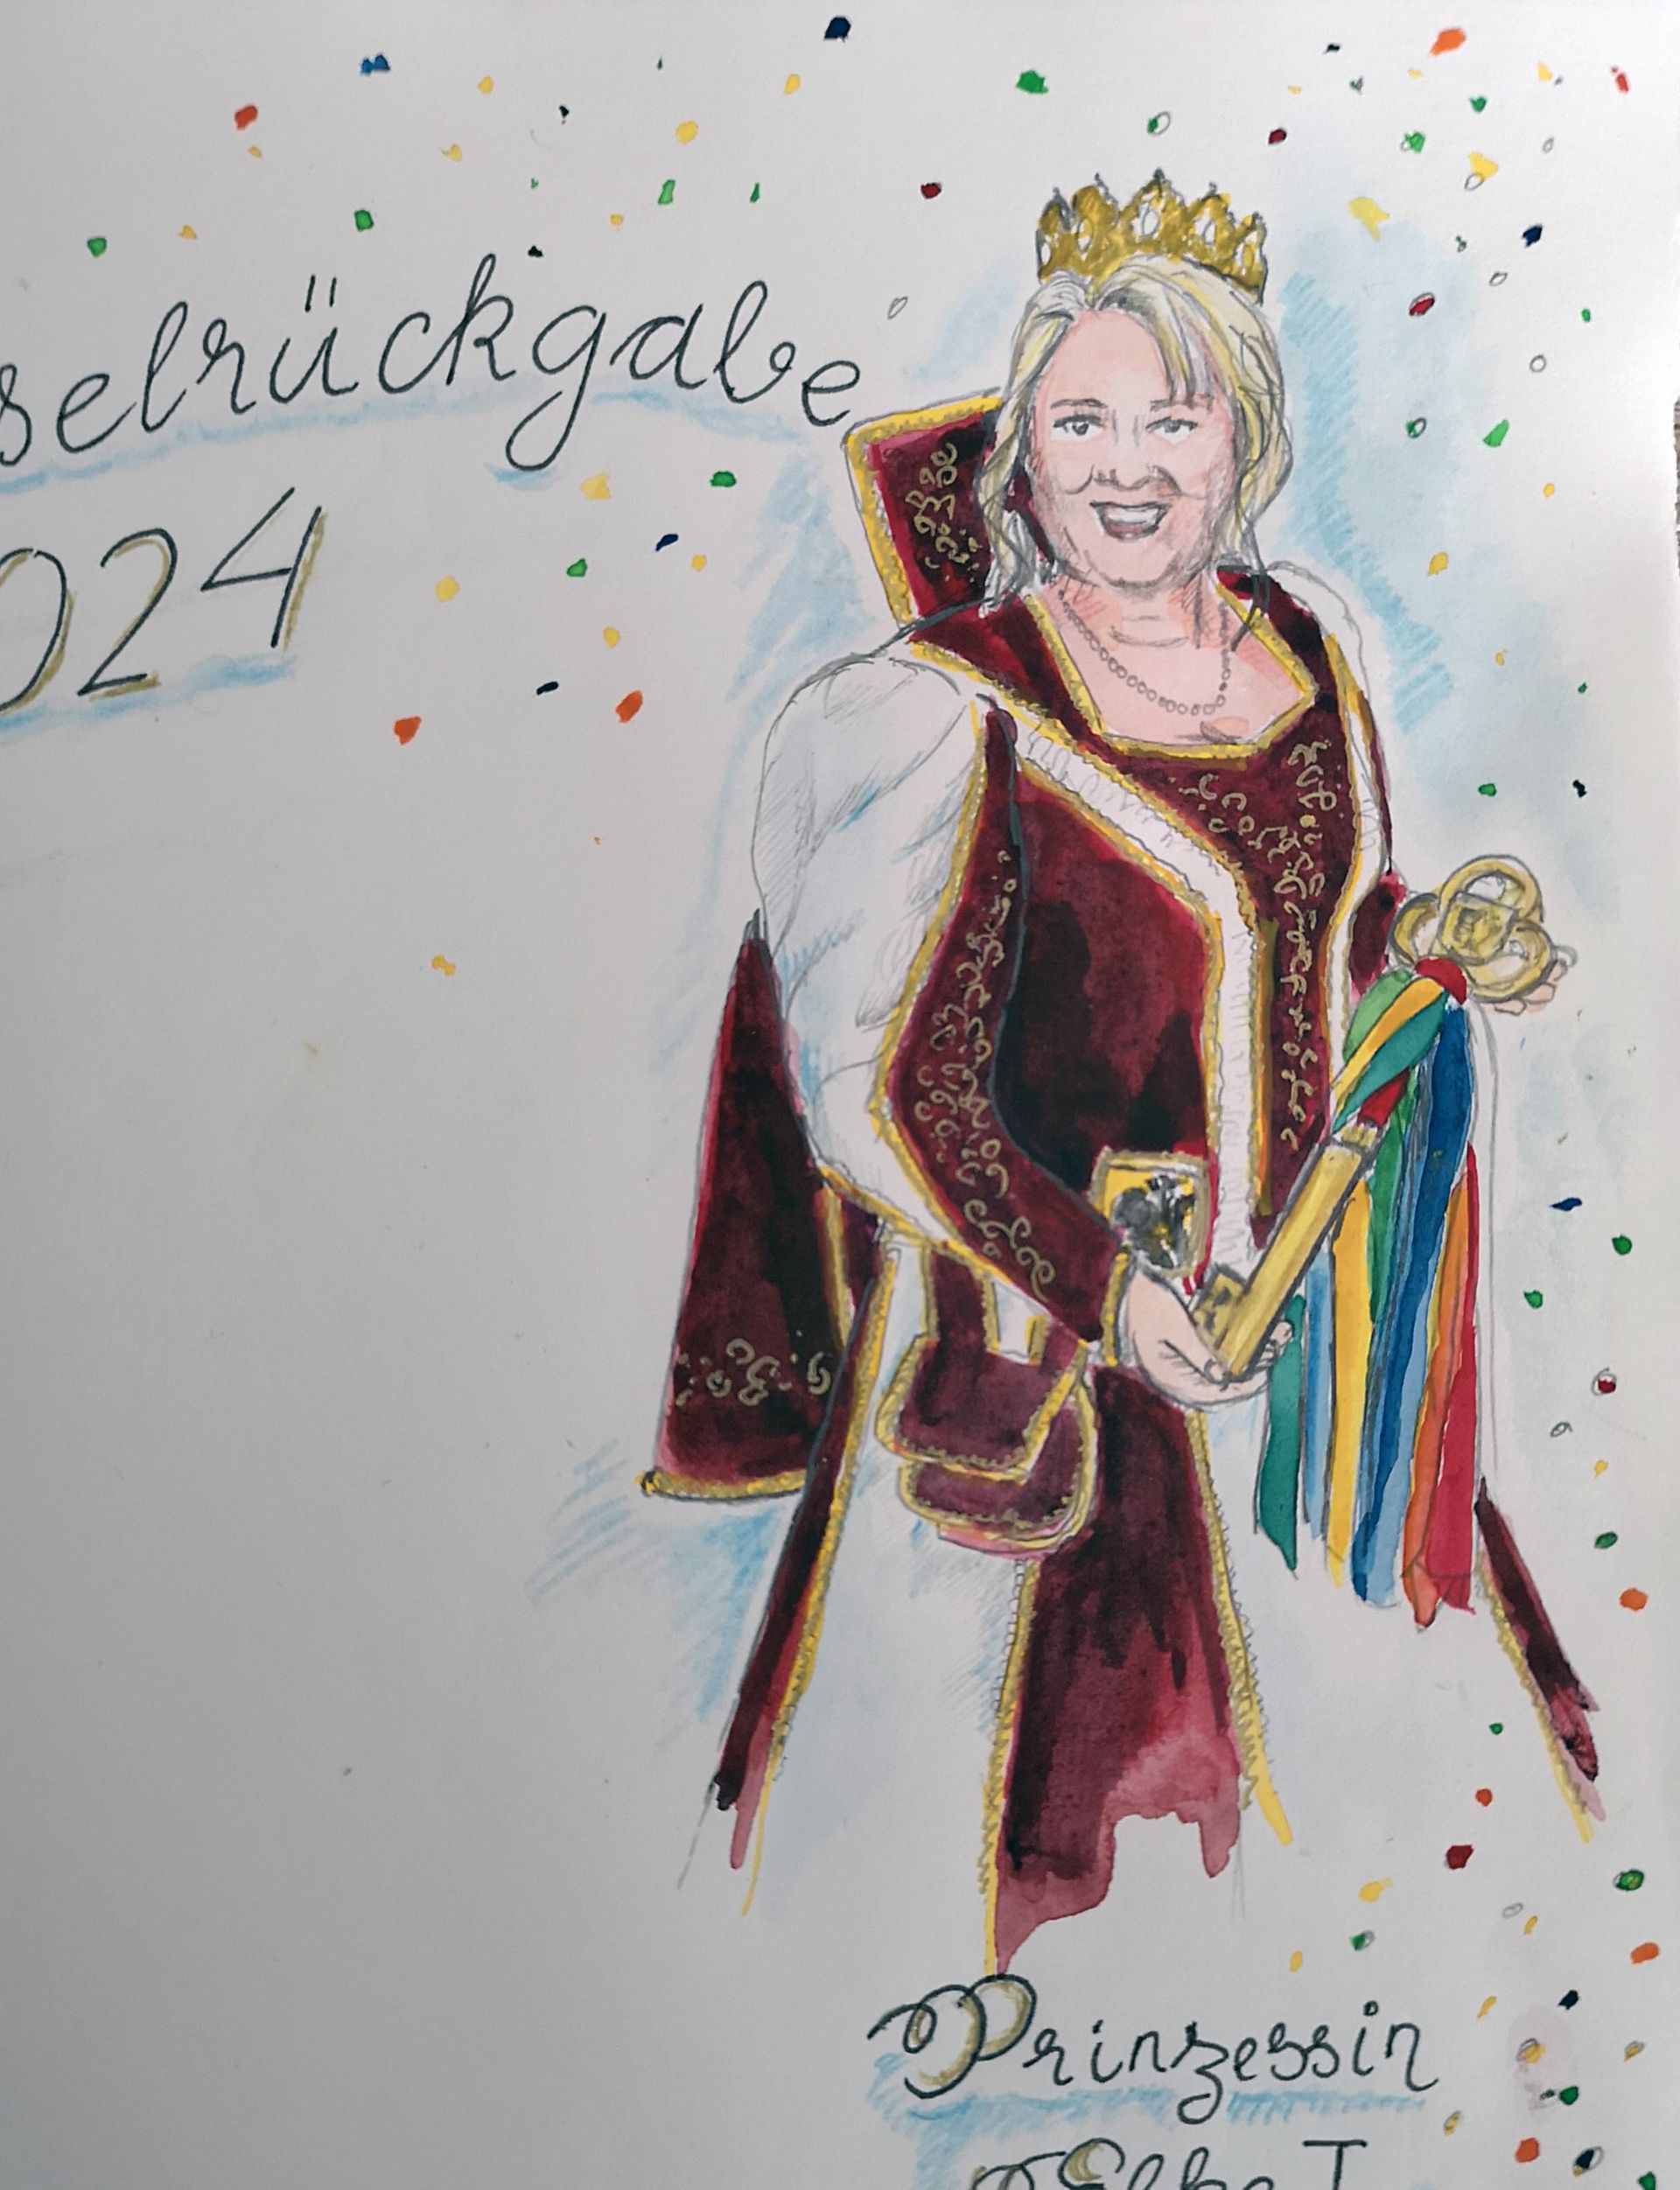 selrückgabe
024
Prinzessin
Elke I